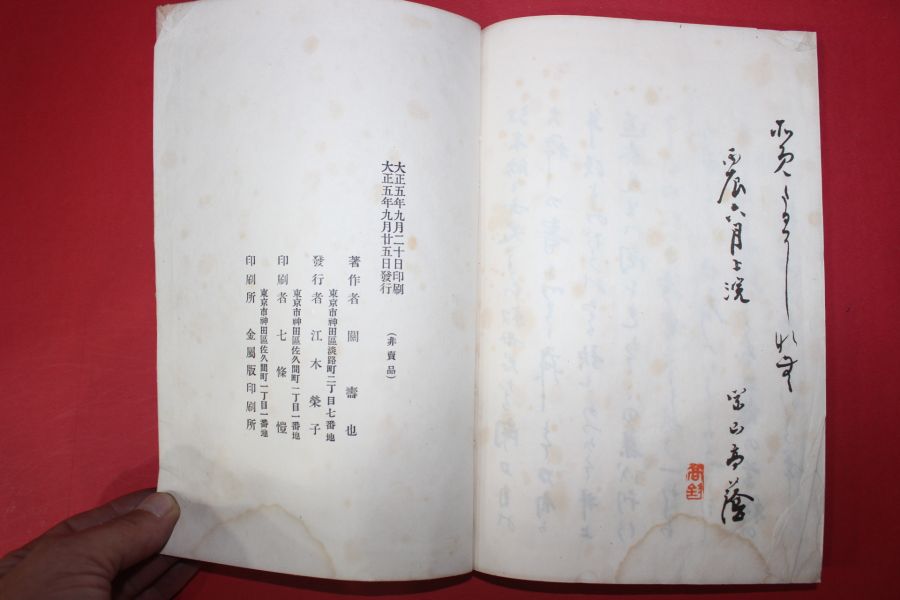 丙辰六月上浣
岡山高蔭
大正五年九月二十日印刷
大正五年九月廿五日發行
(非賣品)
著作者 關壽也
東京市神田區淡路町二丁目七番地
發行者 江木榮子
東京市神田區佐久間町一丁目一番地
印刷者 七條愷
東京市神田區佐久間町一丁目一番地
印刷所 金屬版印刷所